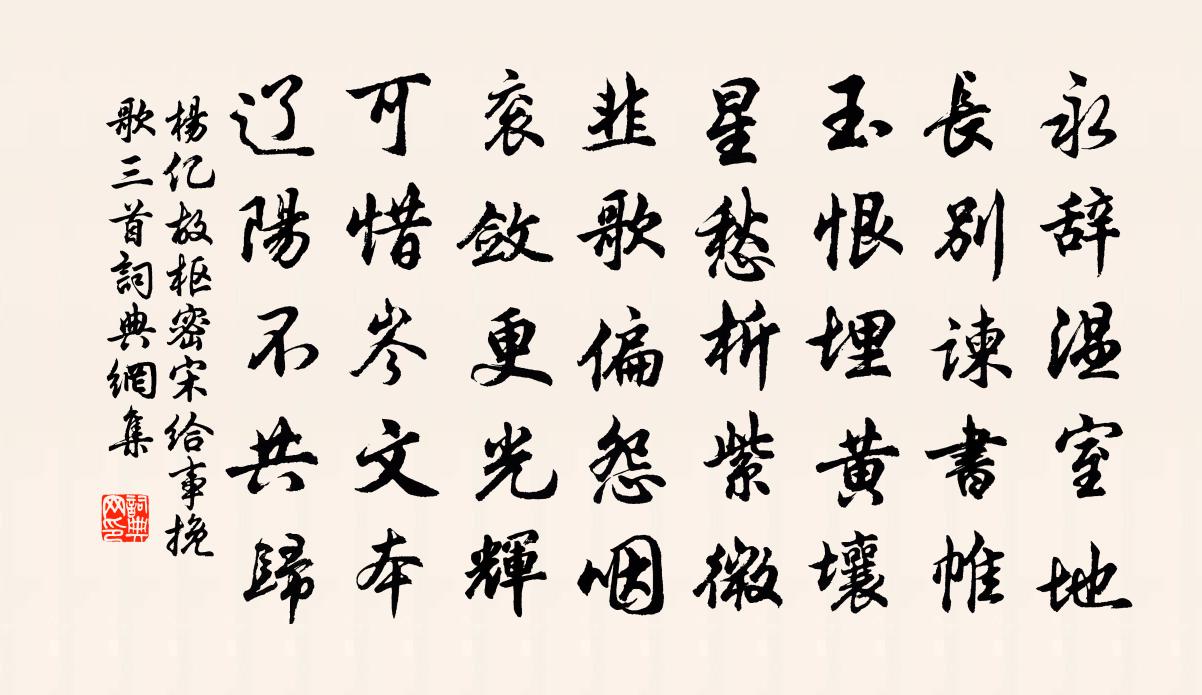 永辞温室地
長别諫書帷
玉恨埋黄壤
星愁析紫微
韭歌偏怨咽
衮斂更光輝
可惜岑文本
辽陽不共歸
楊亿故枢密宋给事挽
歌三首詞典網集
詞典
网印